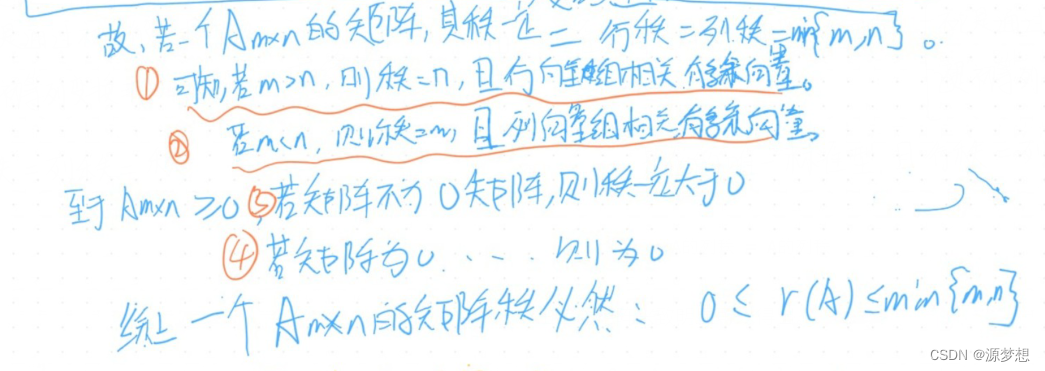 故,若一个Am×n的矩阵,其秩 = 行秩=列秩=min{m,n}。
① 可知,若m>n,则秩=n,且行向量组相关,有多余向量。
② 若m<n,则秩=m,且列向量组相关,有多余向量。
至于Am×n≥0 ③若矩阵不为0矩阵,则秩一定大于0
④若矩阵为0....则为0
综上 一个Am×n的矩阵秩必然: 0≤r(A)≤min{m,n}
CSDN @源梦想